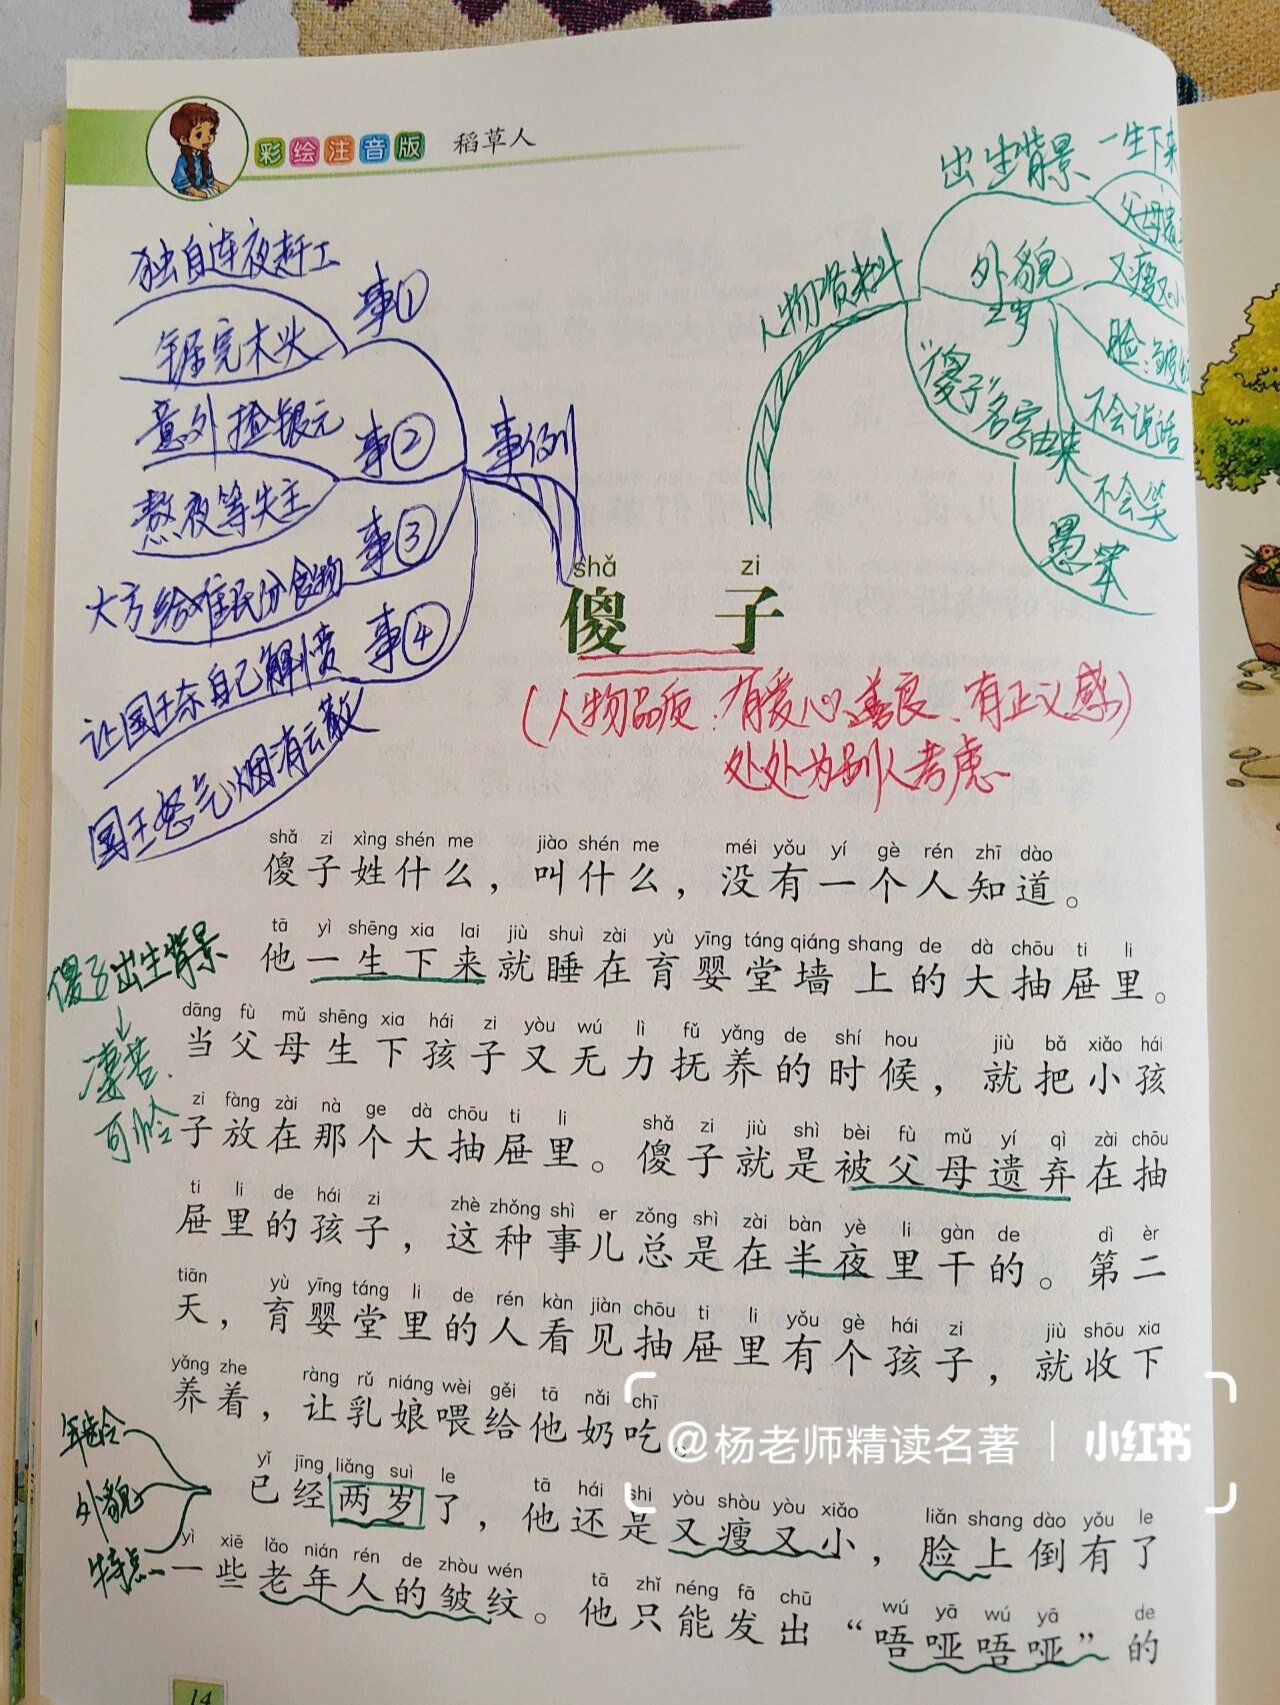 彩绘注音版 稻草人
独自连夜赶工
事①
锯完木头
意外捡银元
事②
熬夜等失主
事例
大方给难民分食物
事③
让国王杀自己解愤
事④
国王怒气烟消云散
出生背景
一生下来
父母遗
人物资料
外貌
两岁
又瘦又小
脸:皱
不会说话
"傻子"名字由来
不会笑
愚笨
shǎ zi
傻子
(人物品质:有爱心、善良、有正义感)
处处为别人考虑
shǎ zi xìng shén me jiào shén me méi yǒu yí gè rén zhī dào
傻子姓什么，叫什么，没有一个人知道。
tā yì shēng xia lai jiù shuì zài yù yīng táng qiáng shang de dà chōu ti li
他一生下来就睡在育婴堂墙上的大抽屉里。
傻子出生背景
凄苦、
可怜
dāng fù mǔ shēng xia hái zi yòu wú lì fǔ yǎng de shí hou jiù bǎ xiǎo hái
当父母生下孩子又无力抚养的时候，就把小孩
zi fàng zài nà ge dà chōu ti li shǎ zi jiù shì bèi fù mǔ yí qì zài chōu
子放在那个大抽屉里。傻子就是被父母遗弃在抽
ti li de hái zi zhè zhǒng shì er zǒng shì zài bàn yè li gàn de dì èr
屉里的孩子，这种事儿总是在半夜里干的。第二
tiān yù yīng táng li de rén kàn jiàn chōu ti li yǒu gè hái zi jiù shōu xia
天，育婴堂里的人看见抽屉里有个孩子，就收下
yǎng zhe ràng rǔ niáng wèi gěi tā nǎi chī
养着，让乳娘喂给他奶吃。
@杨老师精读名著 | 小红书
年龄
外貌
特点
yǐ jīng liǎng suì le tā hái shi yòu shòu yòu xiǎo liǎn shang dào yǒu le
已经两岁了，他还是又瘦又小，脸上倒有了
yì xiē lǎo nián rén de zhòu wén tā zhǐ néng fā chū wú yā wú yā de
一些老年人的皱纹。他只能发出“唔哑唔哑”的
14